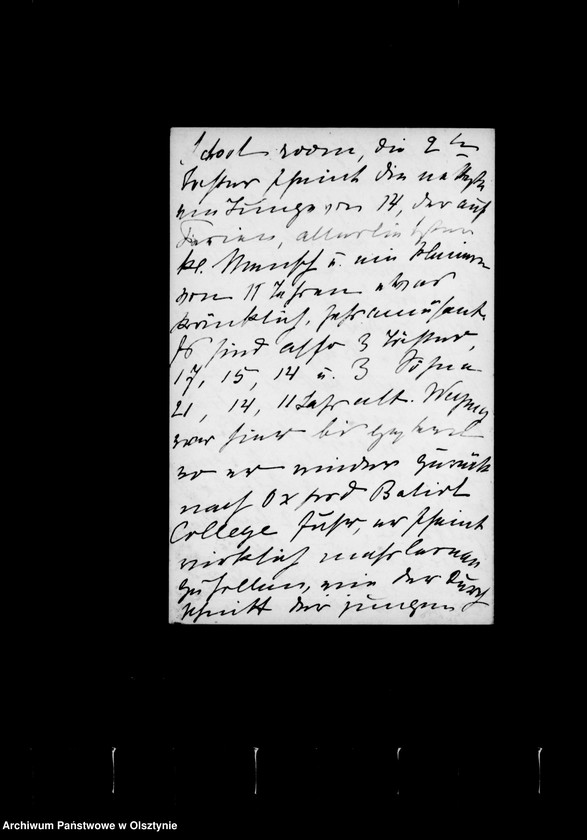 School room, die 2te
Tochter scheint die netteste
ein Junge von 14, der auf
Ferien, allerliebster
kl. Mensch u. ein kleiner
von 11 Jahren etwas
kränklich, sehr amüsant.
Es sind also 3 Töchter,
17, 15, 14 u. 3 Söhne
21, 14, 11 Jahr alt.
war hier bis gestern
wo er wieder zurück
nach Oxford Baliol
College fuhr, er scheint
wirklich mehr lernen
zu sollen, wie der Durch
schnitt der jungen
Archiwum Państwowe w Olsztynie